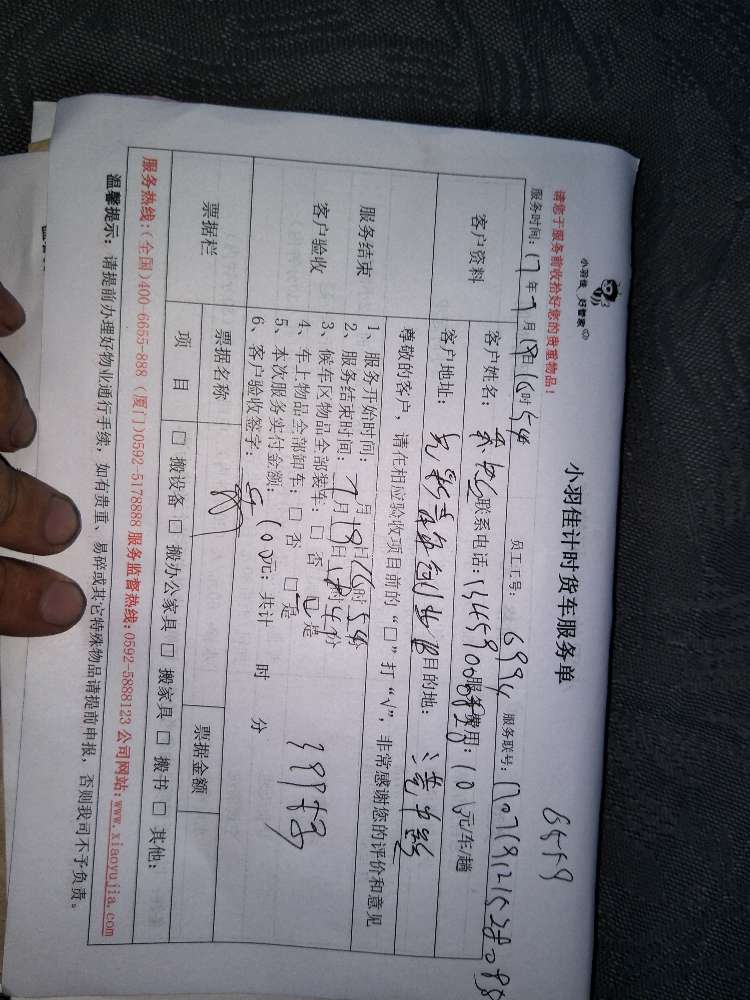 小羽佳 好管家
小羽佳计时货车服务单
8559
请您于服务前收拾好您的贵重物品！
服务时间：17年7月18日16时54 员工工号：6994 服务联号：
客户资料 客户姓名： 联系电话： 服务费用：100元/车/趟
客户地址： 目的地：
尊敬的客户，请在相应验收项目前的“□”打“√”，非常感谢您的评价和意见
服务结束
客户验收
1、服务开始时间： 月 日16时54分
2、服务结束时间：7月18日 时 分
3、候车区物品全部装车：□ 否 □ 是
4、车上物品全部卸车：□ 否 □ 是
5、本次服务实付金额：100元；共计 时 分
6、客户验收签字：
票据栏 票据名称 票据金额
项目 □ 搬设备 □ 搬办公家具 □ 搬家具 □ 搬书 □ 其他：
服务热线：(全国)400-6655-888 (厦门)0592-5178888 服务监督热线：0592-5888123 公司网站：www.xiaoyujia.com
温馨提示：请提前办理好物业通行手续，如有贵重、易碎或其它特殊物品请提前申报，否则我司不予负责。